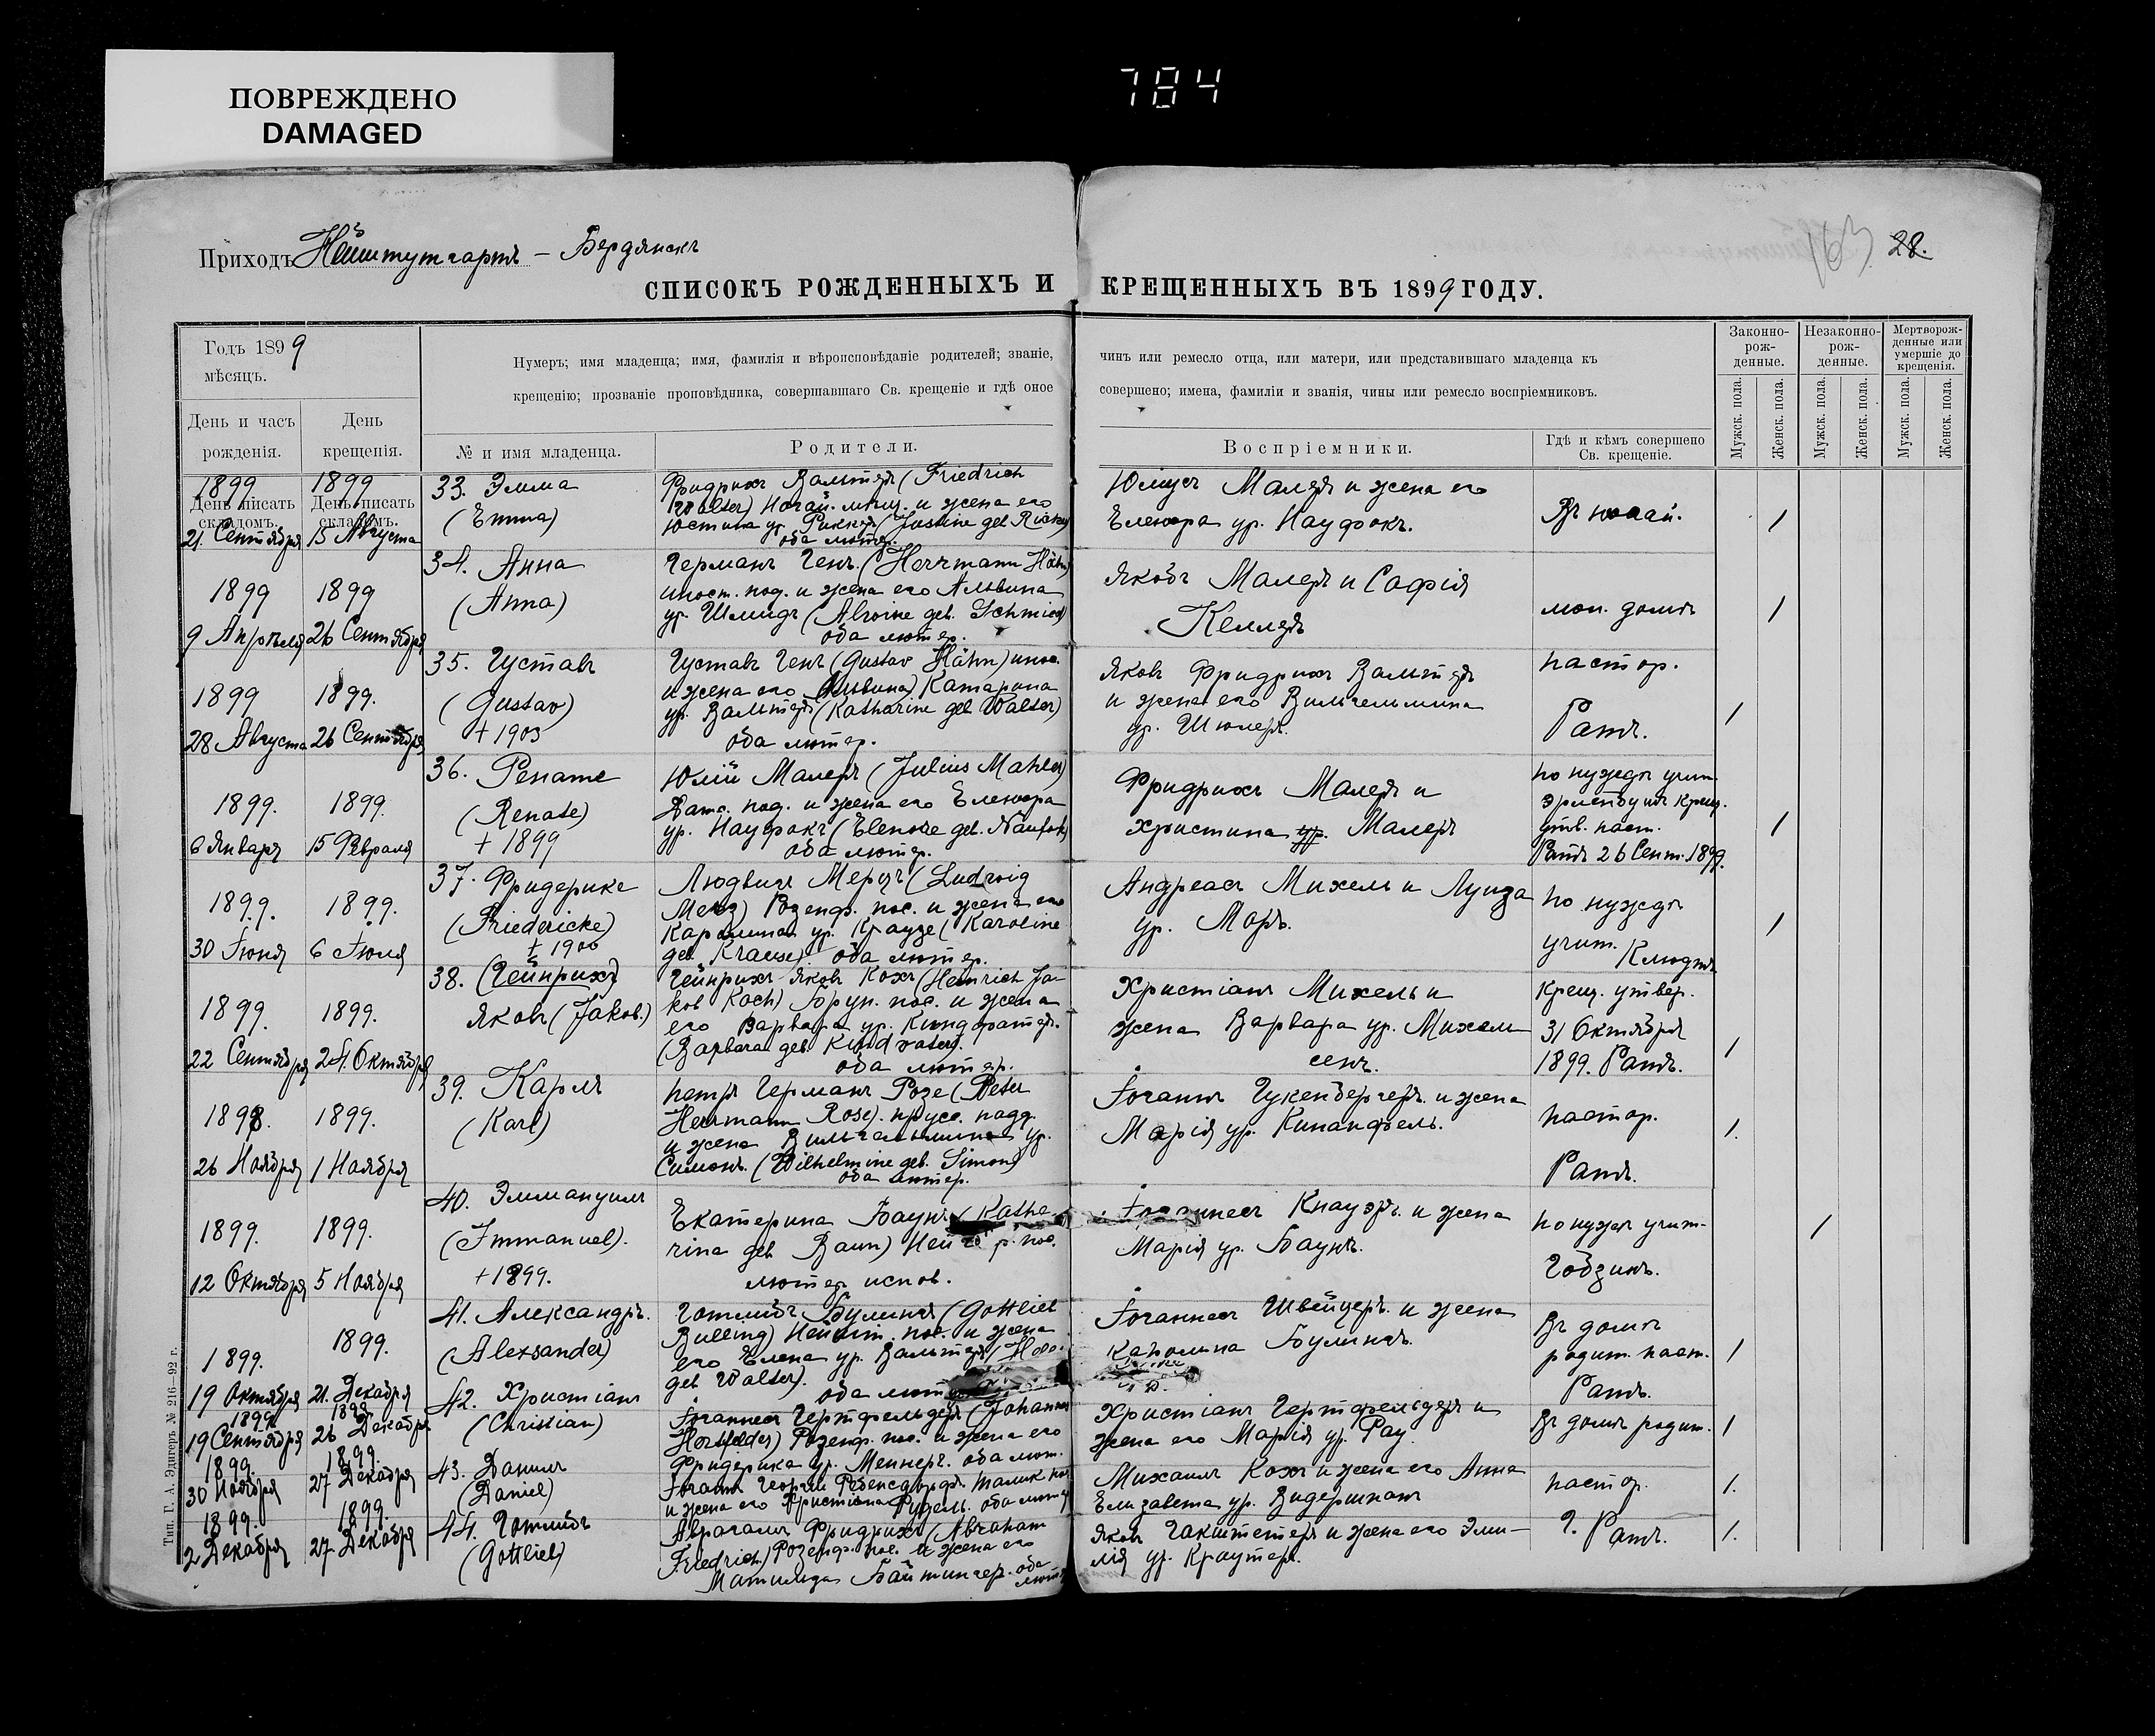 ПОВРЕЖДЕНО
DAMAGED
784
Приходъ Нейштутгартъ – Бердянскъ
163 28.
СПИСОКЪ РОЖДЕННЫХЪ И КРЕЩЕННЫХЪ ВЪ 1899 ГОДУ.
Годъ 1899
мѣсяцъ.
День и часъ рожденія.
День крещенія.
Нумеръ; имя младенца; имя, фамилія и вѣроисповѣданіе родителей; званіе, чинъ или ремесло отца, или матери, или представившаго младенца къ
крещенію; прозваніе проповѣдника, совершавшаго Св. крещеніе и гдѣ оное совершено; имена, фамиліи и званія, чины или ремесло воспріемниковъ.
№ и имя младенца.
Родители.
Воспріемники.
Гдѣ и кѣмъ совершено
Св. крещеніе.
Законно-
рож-
денные.
Незаконно-
рож-
денные.
Мертворож-
денные или
умершіе до
крещенія.
Мужск. пола.
Женск. пола.
Мужск. пола.
Женск. пола.
Мужск. пола.
Женск. пола.
День писать
складомъ.
День писать
складомъ.
1899
21. Сентября
1899
15 Августа
33. Эмма
(Emma)
Фридрихъ Вальтеръ (Friedrich
Walter) Ногай. мѣщ. и жена его
Юстина ур. (Justine geb.
оба лютер.
Юліусъ Малеръ и жена его
Еленора ур. Науфокъ.
Въ ногай.
1
1899
9 Апрѣля
1899
26 Сентября
34. Анна
(Anna)
Германъ Генъ (Herrmann Hähn)
иност. под. и жена его Альвина
ур. Шмидъ (Alwine geb. Schmied)
оба лютер.
Якобъ Малеръ и Софія
Келлеръ
мол. домъ
1
1899
28 Августа
1899.
26 Сентября
35. Густавъ
(Gustav)
+ 1903
Густавъ Генъ (Gustav Hähn) инос.
и жена его (Альвина) Катарина
ур. Вальтеръ (Katharine geb Walter)
оба лютер.
Яковъ Фридрихъ Вальтеръ
и жена его Вильгельмина
ур. Шюлеръ.
пастор.
Ратъ.
1
1899.
6 Января
1899.
15 Февраля
36. Ренате
(Renate)
+ 1899
Юлій Малеръ (Julius Mahler)
Датс. под. и жена его Еленора
ур. Науфокъ (Elenore geb. Naufok)
оба лютер.
Фридрихъ Малеръ и
Христина ур. Малеръ
по нуждѣ учит.
крещ.
утв. паст.
Ратъ 26 Сент. 1899.
1
1899.
30 Іюня
1899.
6 Іюля
37. Фридерике
(Friedericke)
+ 1900
Людвигъ Мерцъ (Ludwig
Merz) Розенф. пос. и жена его
Каролина ур. Краузе (Karoline
geb. Krause) оба лютер.
Андреасъ Михель и Луиза
ур. Моръ.
по нуждѣ
учит.
1
1899.
22 Сентября
1899.
24. Октября
38. (Гейнрихъ)
Яковъ (Jakob.)
Гейнрихъ Яковъ Кохъ (Heinrich Ja-
kob Koch) Грун. пос. и жена
его Варвара ур. Киндфатеръ.
(Barbara geb. Kindvater).
оба лютер.
Христіанъ Михель и
жена Варвара ур. Михель
сенъ.
крещ. утвер.
31 Октября
1899. Ратъ.
1
1898.
26 Ноября
1899.
1 Ноября
39. Карлъ
(Karl)
Петръ Германъ Розе (Peter
Herrmann Rose). прусс. подд.
и жена Вильгельмина ур.
Симонъ. (Wilhelmine geb. Simon)
оба лютер.
Іоганнъ Гукенбергеръ и жена
Марія ур. Кинапфель.
пастор.
Ратъ.
1.
1899.
12 Октября
1899.
5 Ноября
40. Эммануилъ
(Immanuel).
+ 1899.
Екатерина Баунъ (Kathe-
rina geb Baun) пос.
лютер испов.
Іоганнесъ Кнауэръ и жена
Марія ур. Баунъ.
по нуждѣ учит-
Гобзинъ.
1
1899.
19 Октября
1899.
21. Декабря
41. Александръ.
(Alexsander)
Готлибъ Булингъ (Gottlieb
Bulling) Нейшт. пос. и жена
его Елена ур. Вальтеръ (Hele-
geb Walter).
оба лют
Іоганнесъ Швейцеръ. и жена
Каролина Булингъ.
Въ домѣ
родит. паст.
Ратъ.
1
1899
19 Сентября
1899
26 Декабря
42. Христіанъ
(Christian)
Іоганнесъ Гертфельдеръ (Johannes
Hertfelder) Розенф. пос. и жена его
Фридерика ур. Меннеръ. оба лют.
Христіанъ Гертфельдеръ и
жена его Марія ур. Рау
Въ домѣ родит.
1
1899.
30 Ноября
1899.
27 Декабря
43. Даніилъ
(Daniel)
Іоганнъ Георгій
и жена его Христіана оба лютер
Михаилъ Кохъ и жена его Анна
Елизавета ур. Видершпанъ
пастор.
1.
1899.
2 Декабря
1899.
27 Декабря
44. Готлибъ
(Gottlieb)
Аврагамъ Фридрихъ (Abraham
Friedrich) Розенф. пос. и жена его
Матильда Байтингеръ. оба
лютер
Яковъ Гакштетеръ и жена его Эми-
лія ур. Краутеръ.
Г. Ратъ.
1.
Тип. Г. А. Эдигеръ № 216—92 г.